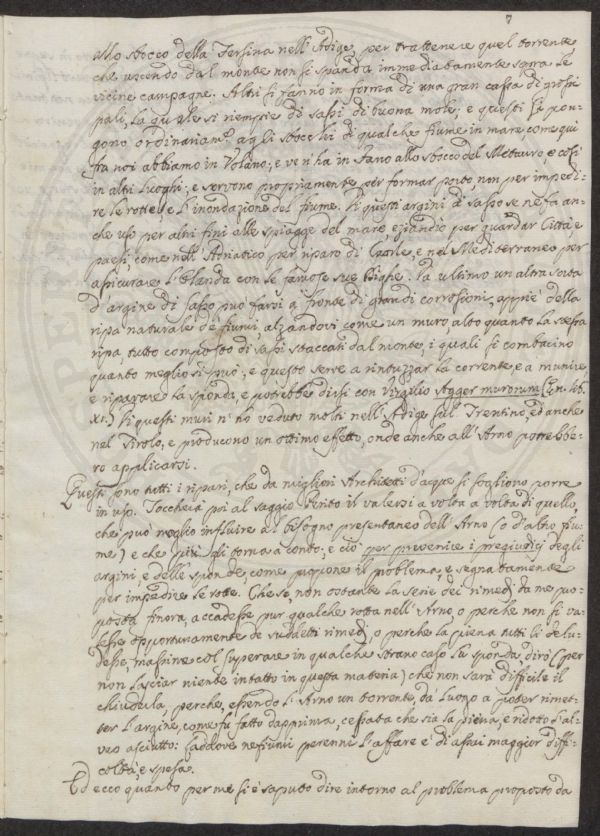 7
allo sbocco della Fersina nell'Adige, per trattenere quel torrente,
che uscendo dal monte non si spanda immediatamente sopra le
vicine campagne. Altri si fanno in forma di una gran cassa di grossi
pali, la quale si riempie di sassi di buona mole; e questi si pon-
gono ordinariam.e agli sbocchi di qualche fiume in mare, come qui
fra noi abbiamo in Volano; e ve n'ha in Fano allo sbocco del Metauro, e così
in altri luoghi; e servono propriamente per formar porto, non per impedi-
re le rotte, e l'inondazione del fiume. Di questi argini di sasso se ne fa an-
che uso per altri fini alle spiagge del mare, eziandio per guardar Città e
paesi come nell'Adriatico per riparo di Caorle, e nel Mediterraneo per
assicurare l'Olanda con le famose sue Dighe. Da ultimo un'altra sorta
d'argine di sasso può farsi a fronte di grandi corrosioni, appiè della
ripa naturale de' fiumi, alzandovi come un muro, alto quanto la stessa
ripa, tutto composto di sassi staccati dal monte, i quali si combacino
quanto meglio si può; e questo serve a rintuzzar la corrente, e a munire
e riparare la sponda, e potrebbe dirsi con Virgilio Agger murorum (Æn. lib.
XI.) Di questi muri n'ho veduto molti nell'Adige sul Trentino, ed anche
nel Tirolo, e producono un ottimo effetto, onde anche all'Arno potrebbe-
ro applicarsi.
Questi sono tutti i ripari, che da migliori Architetti d'acque si sogliono porre
in uso. Toccherà poi al saggio Perito il valersi a volta a volta di quello,
che può meglio influire al bisogno presentaneo dell'Arno (o d'altro fiu-
me) e che più gli torna a conto; e ciò per prevenire i pregiudizj degli
argini, e delle sponde, come suppone il problema, e segnatamente
per impedire le rotte. Che se, non ostante la serie dei rimedj da me pro-
posta finora, accadesse pur qualche rotta nell'Arno, o perchè non si va-
lesse opportunamente de' suddetti rimedj, o perchè la piena tutti li delu-
desse, massime col superare in qualche strano caso la sponda, dirò (per
non lasciar niente intatto in questa materia) che non sarà difficile il
chiuderla, perchè, essendo l'Arno un torrente, dà luogo a poter rimet-
ter l'argine, come fu fatto dapprima, cessata che sia la piena, e ridotto l'al-
veo asciutto: laddove ne' fiumi perenni l'affare è di assai maggior diffi-
coltà, e spesa.
Ed ecco quanto per me si è saputo dire intorno al problema proposto da